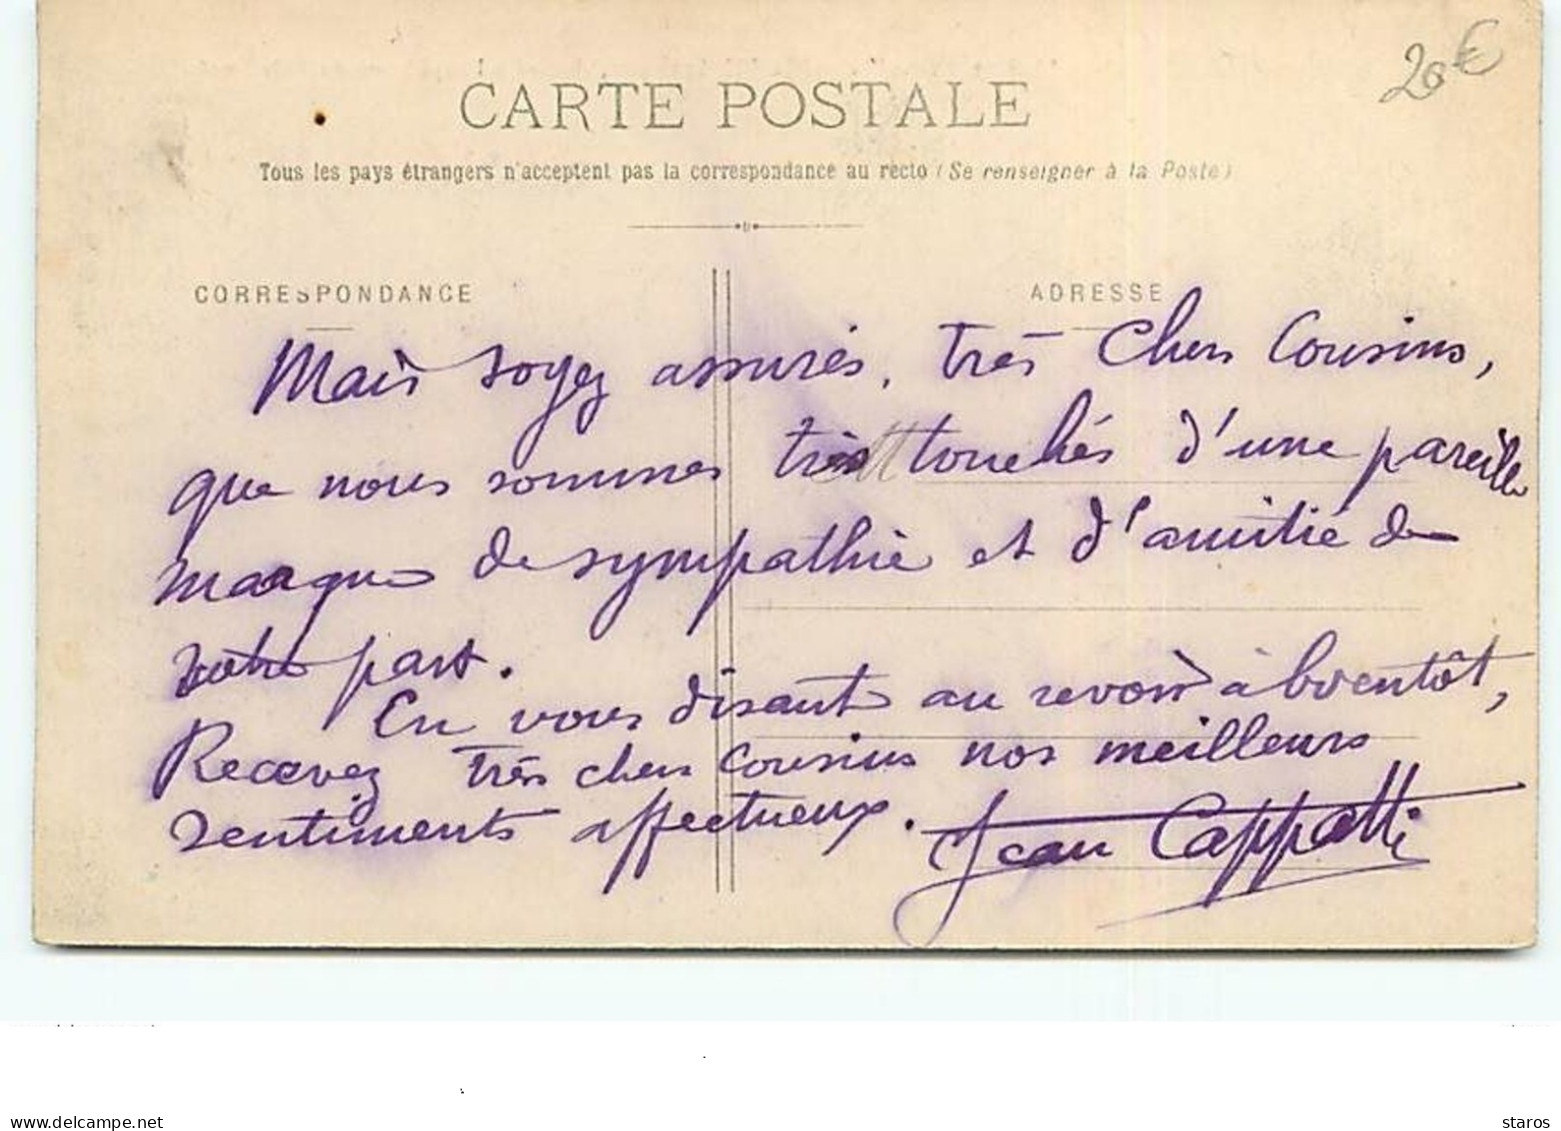 20€
CARTE POSTALE
Tous les pays étrangers n'acceptent pas la correspondance au recto (Se renseigner à la Poste)
CORRESPONDANCE
ADRESSE
Mais soyez assurés, très chers Cousins,
que nous sommes très touchés d'une pareille
marque de sympathie et d'amitié de
votre part.
En vous disant au revoir à bientôt,
Recevez très chers cousins nos meilleurs
sentiments affectueux. Jean Cappatti
www.delcampe.net
staros